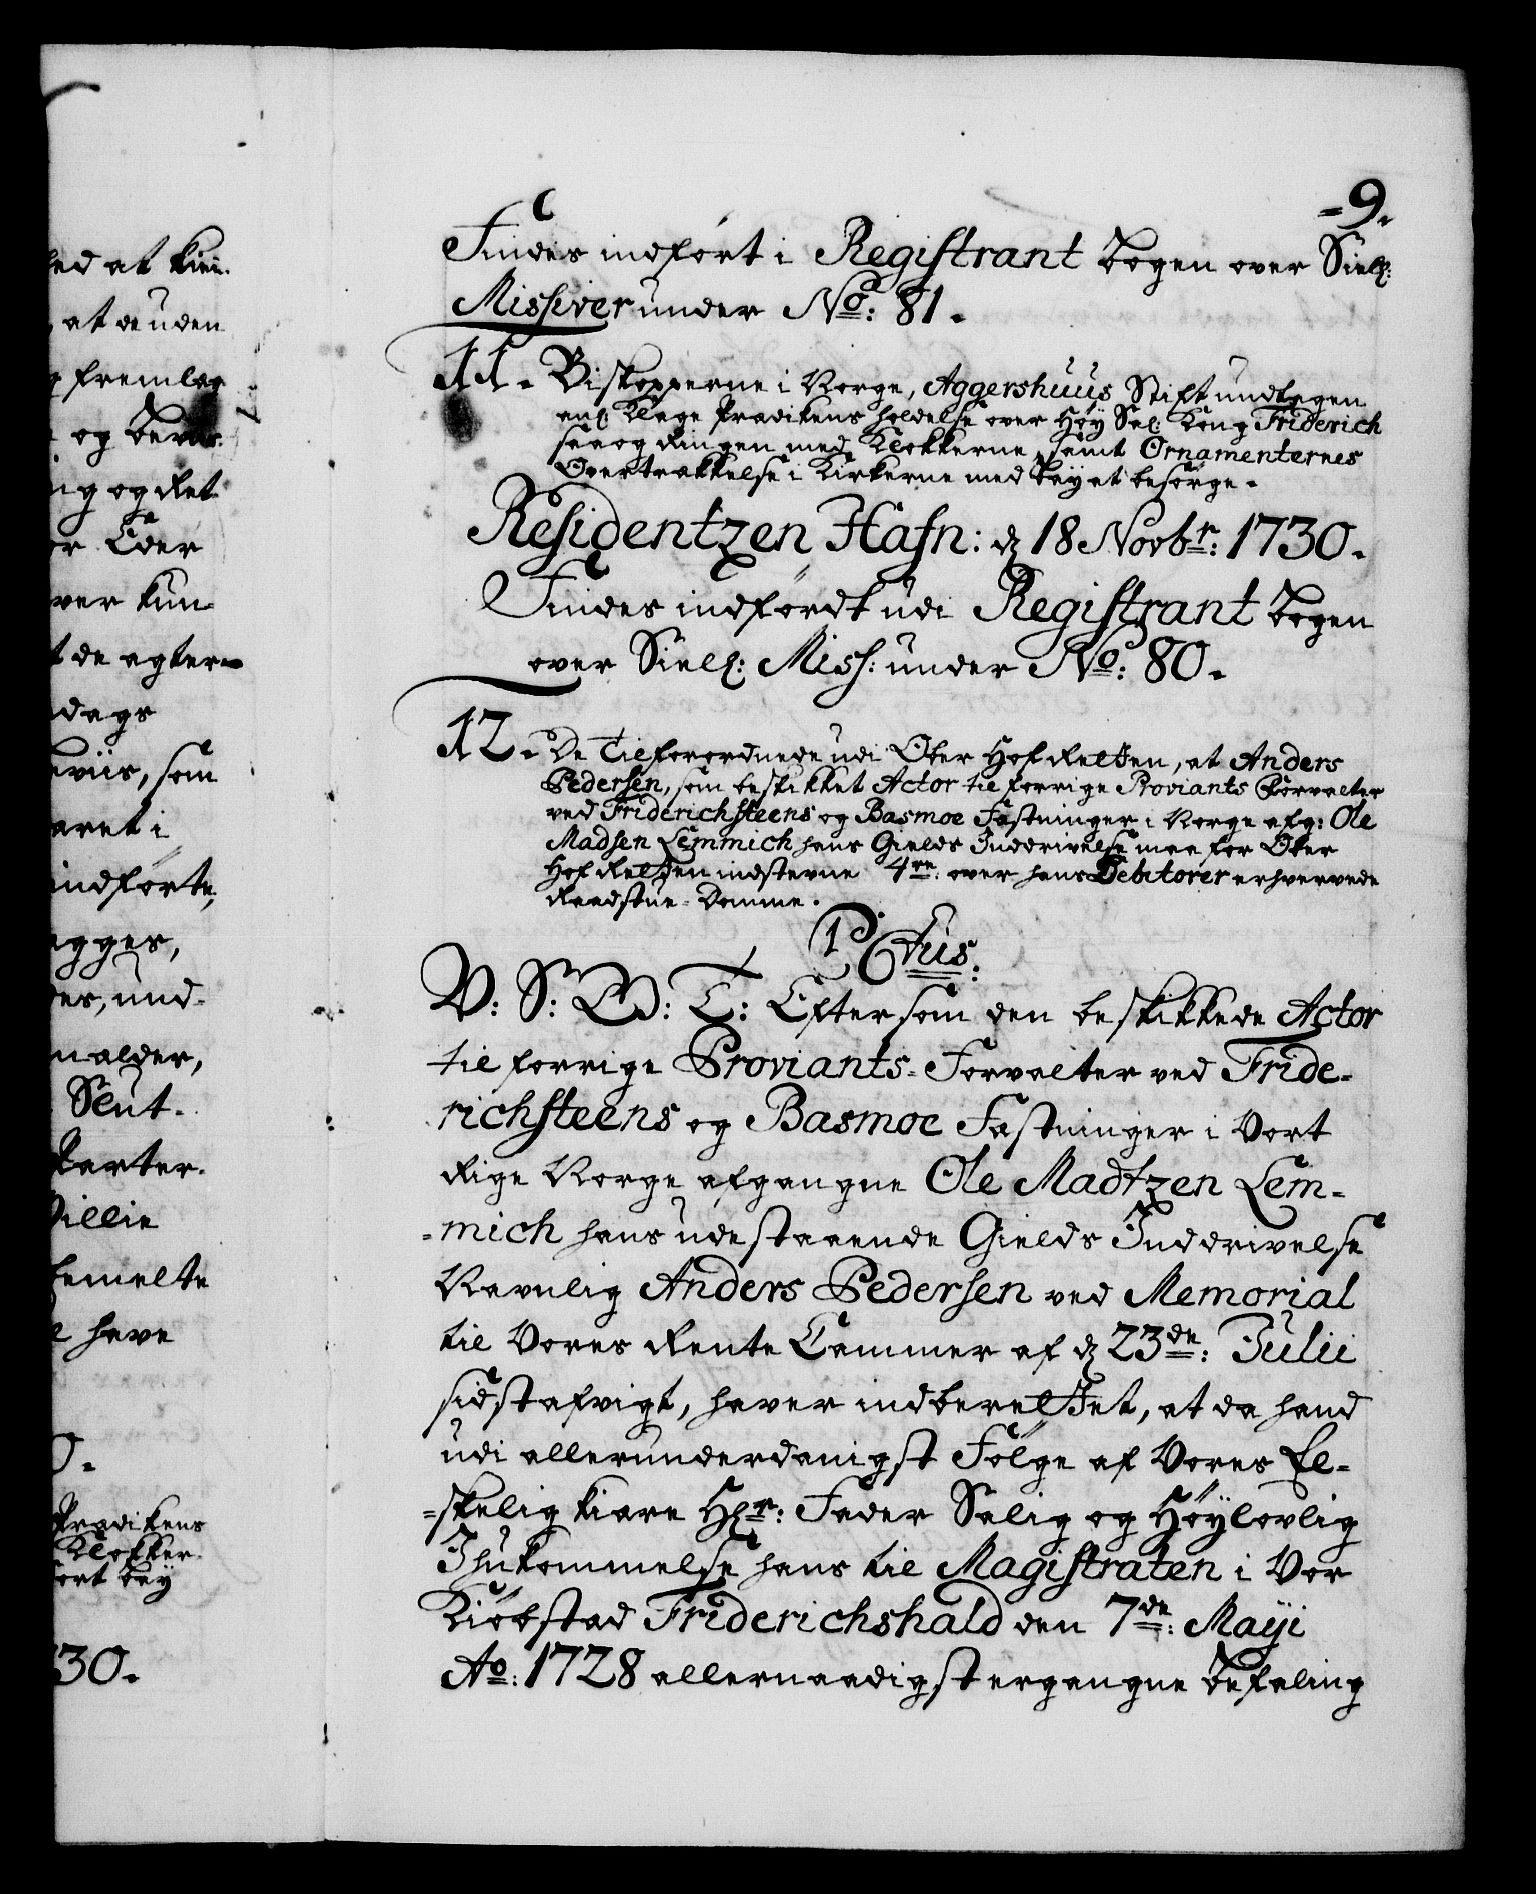 =9.
Findes indført i Registrant bogen over Siell:
Missiver under No: 81.
11. Biskopperne i Norge, Aggershuus Stift undtagen
anl. Klage Prædikens holdelse over Høy Sal: Kong Friderich
saa og Ringen med Klokkerne, samt Ornamenternes
Overtrækkelse i Kirkerne med bay at besørge.
Residentzen Hafn: d 18 Novbr: 1730.
Findes indfördt udi Registrant bogen
over Siell: Miss: under No: 80.
12. De Tilforordnede udi Ober Hof Retten, at Anders
Pedersen, som beskikket Actor til forrige Proviants Forvalter
ved Friderichsteens og Basmoe Fæstninger i Norge afg: Ole
Madsen Lemmich hans Gields Inddrivelse maa for Ober
Hof Retten indstevne 4re: over hans Debitorer erhvervede
Raadstue-Domme.
P Ctus:
V: S: G: T: Eftersom den beskikkede Actor
til forrige Proviants-Forvalter ved Fride-
richsteens og Basmoe Fæstninger i Vort
Rige Norge afgangne Ole Madtzen Lem-
=mich hans udestaaende Gields Inddrivelse
Navnlig Anders Pedersen ved Memorial
til Vores Rente Cammer af d 23de: Julii
sidstafvigt, haver indberettet, at da hand
udi allerunderdanigst Følge af Vores El-
=skelig kiære Hr: Fader Salig og Høylovlig
Ihukommelse hans til Magistraten i Vor
Kiöbstad Friderichshald den 7de: Mayi
Ao: 1728 allernaadigst ergangne Befaling
at de uden
fremlæg
og Ret
Eder
ver kun-
t de agter=
dags
som
aret i
indførte,
ægges,
der, und-
Slut-
Parter-
Villie
bemelte
have
0.
Prædikens
Klokker-
ort bay
30.